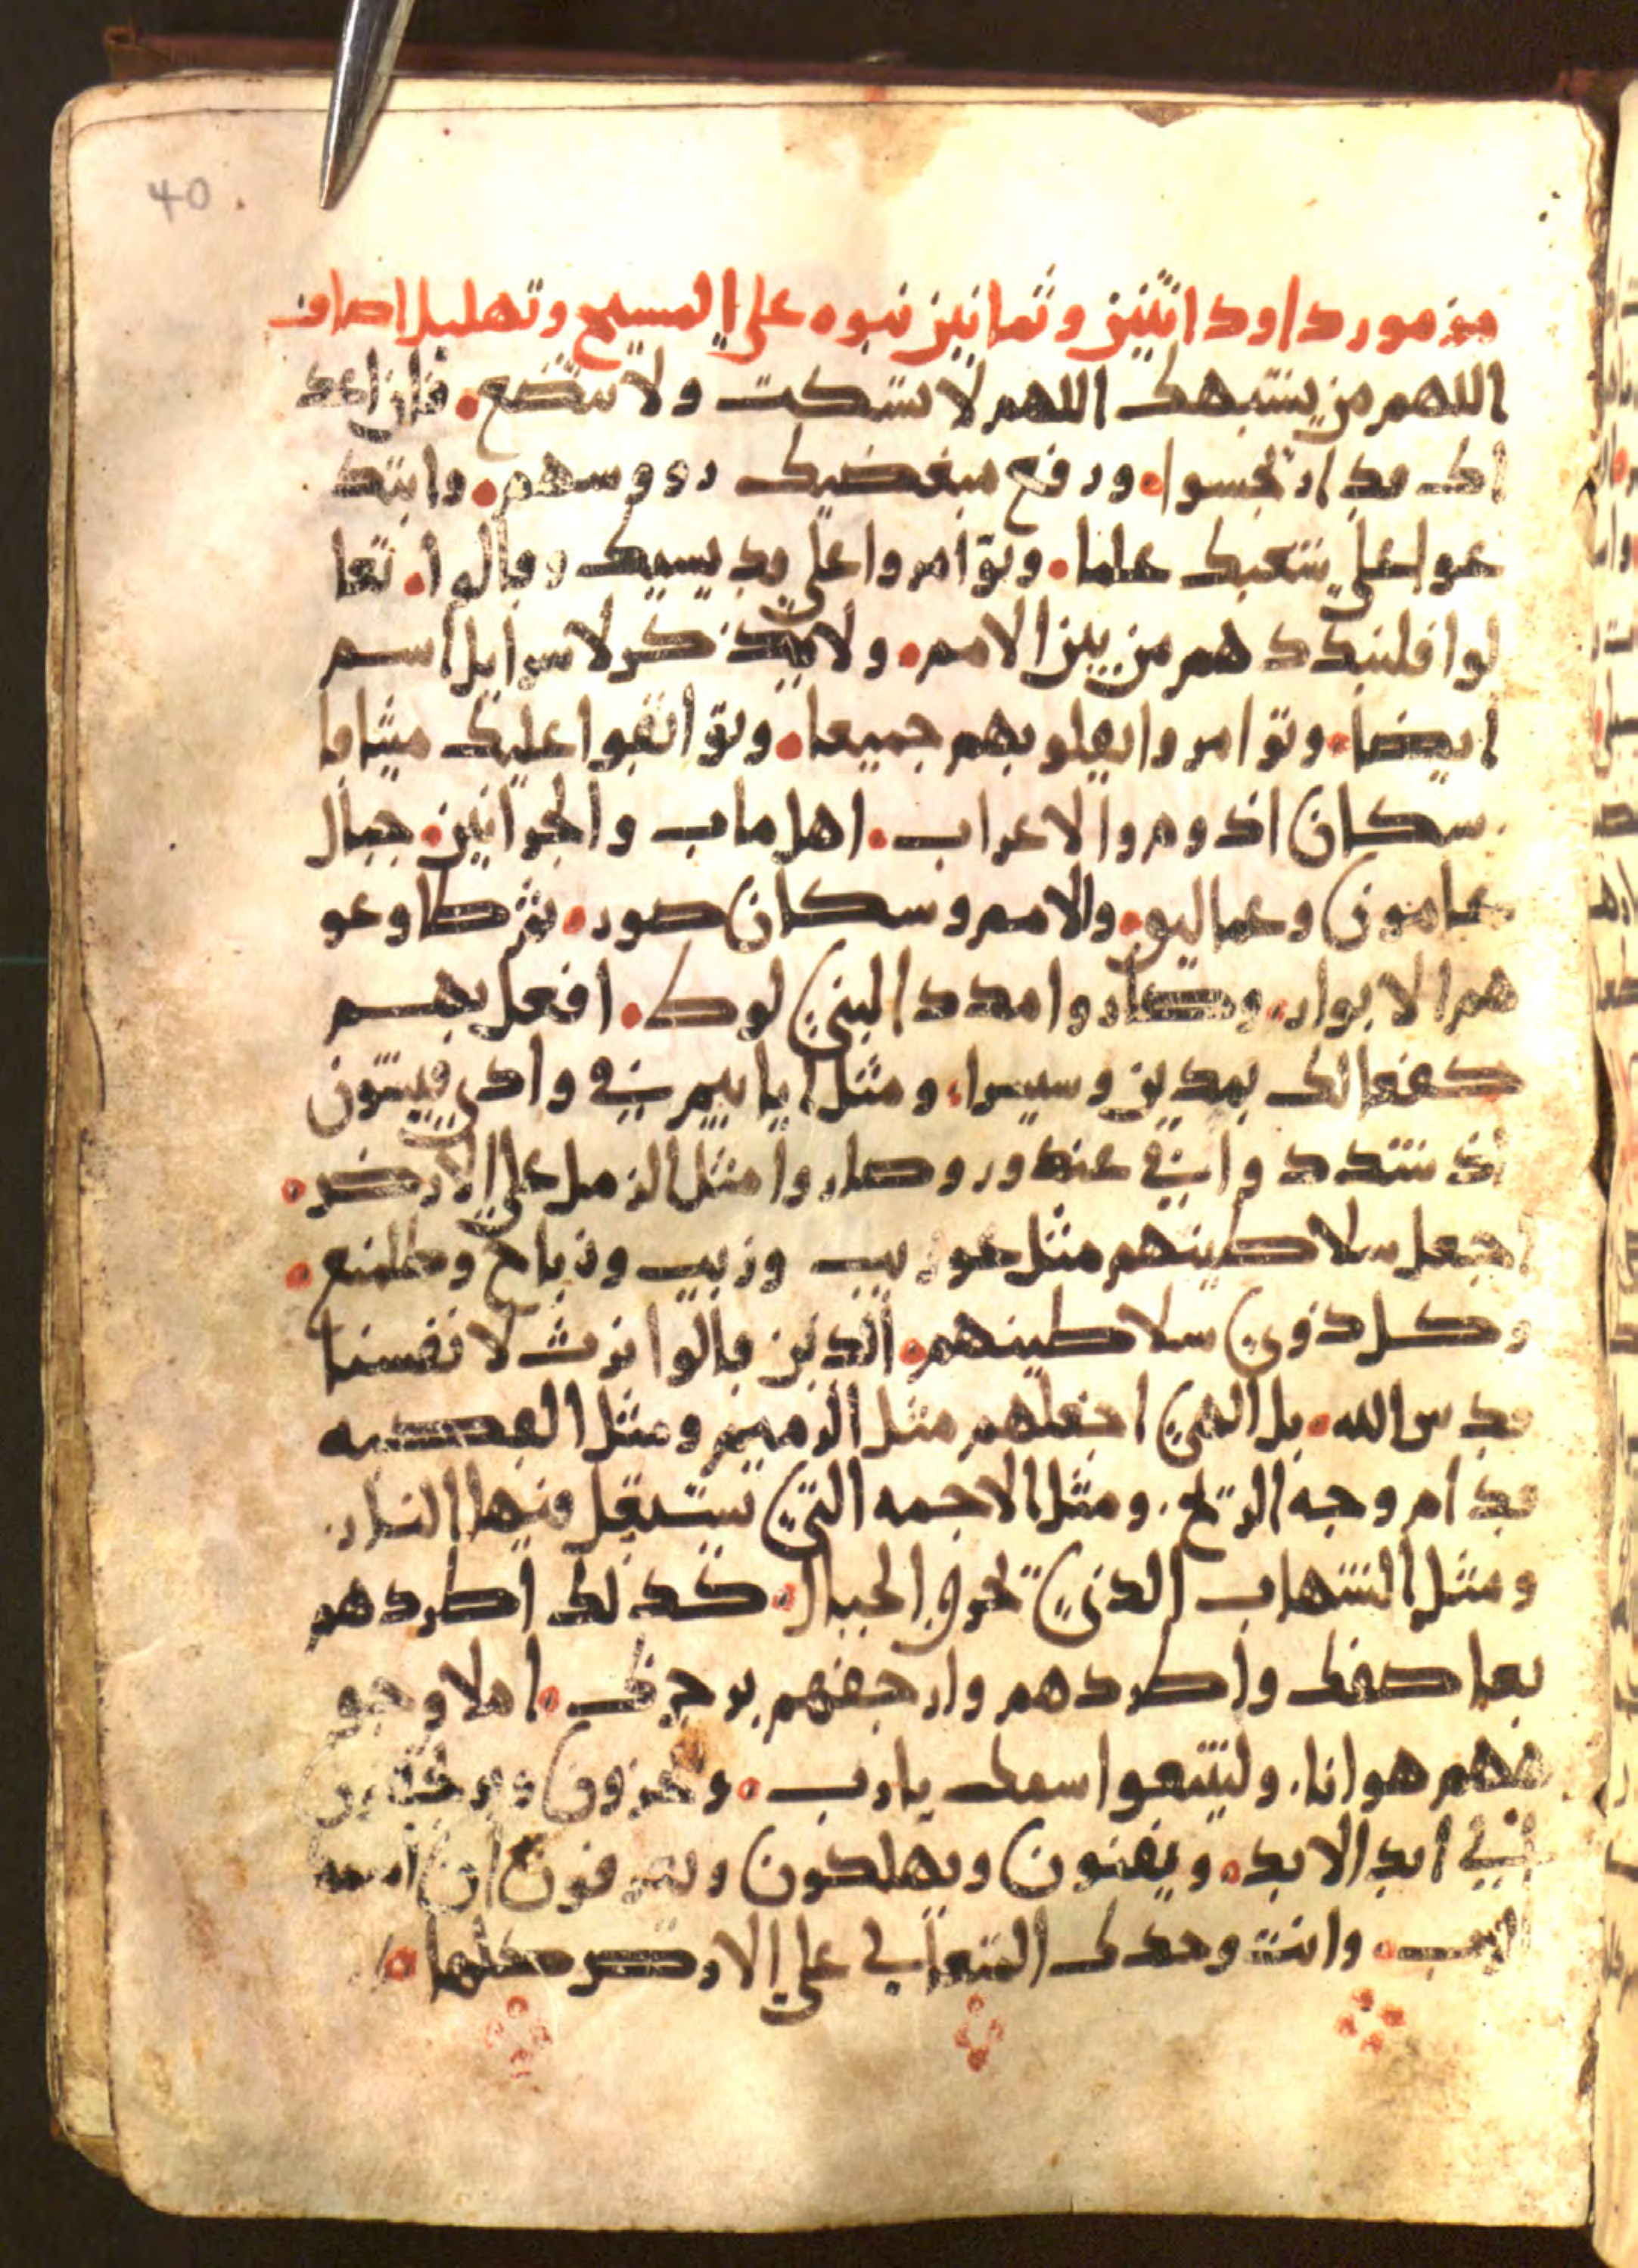 40
مزمور داود اثنين وثمانين نبوه على المسيح وتهليل اصاف
اللهم من يشبهك اللهم لا تسكت ولا تتضع. فان اعد
اك قد ارتجسوا. ورفع مبغضيك رووسهم. وابتد
عوا على شعبك علما. وتوامروا على قديسيك وقالوا. تعا
لوا فلنبددهم من بين الامم. ولا يذكر لاسرايل اسم
ايضا. وتوامروا بقلوبهم جميعا. وتواثقوا عليك ميثاقا
سكان اذوم والاعراب. اهل ماب والجرانيين. جبال
عامون وعماليق. والامم وسكان صور. ثم طاوعو
هم الاثوار. وصاروا مددا لبني لوط. افعل بهم
كفعالك بمدين وسيسرا. ومثل يابيم في وادي فيسون
اذ شددوا في عندور وصاروا مثل الزمل على الارض.
اجعل سلاطينهم مثل عوريب وزيب وذباح وطلمنع.
وكل ذوي سلاطينهم. الذين قالوا نرث لانفسنا
قدس الله. بل الهي اجعلهم مثل الرميم ومثل القصبه
قدام وجه الريح. ومثل الاجمه التي تشتعل فيها النار.
ومثل الشهاب الذي تحرق الجبال. كذلك اطردهم
بعاصفك واطردهم وارجفهم برجزك. املا وجو
ههم هوانا. وليتبعوا اسمك يارب. ويخزون ويرتجفون
الي ابد الابد. ويفنون ويهلكون ويعرفون ان اسمك
الرب. وانت وحدك المتعالي على الارض كلها.